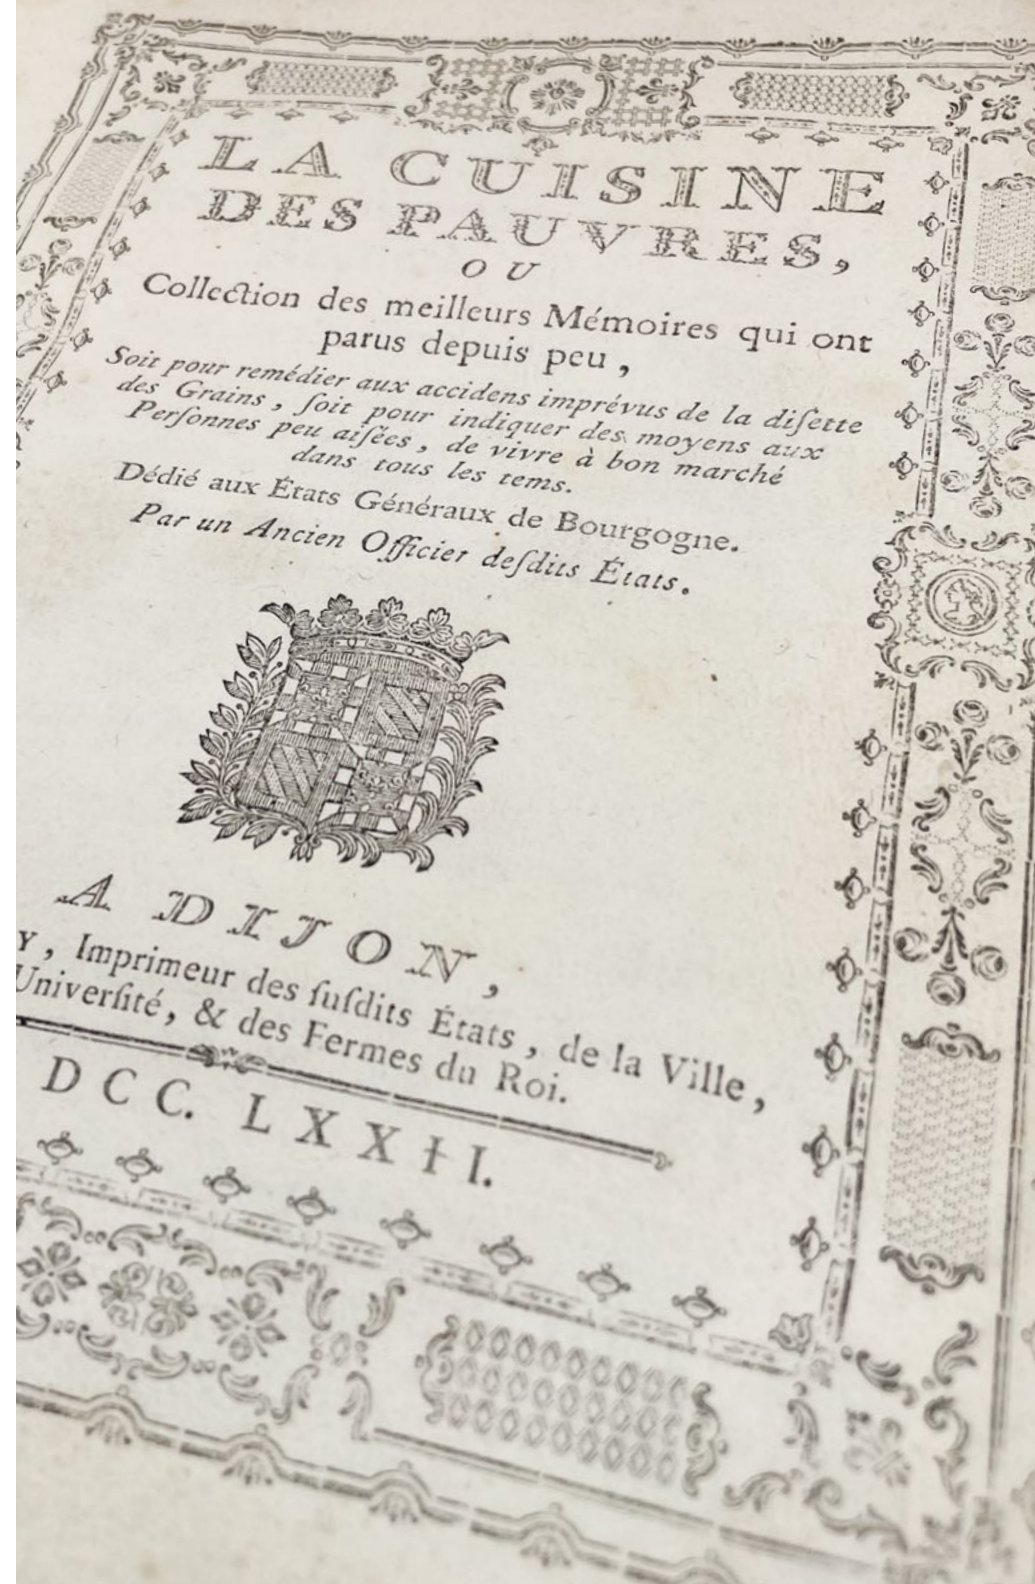 LA CUISINE
DES PAUVRES,
OU
Collection des meilleurs Mémoires qui ont
parus depuis peu,
Soit pour remédier aux accidens imprévus de la diſette
des Grains, ſoit pour indiquer des moyens aux
Perſonnes peu aiſées, de vivre à bon marché
dans tous les tems.
Dédié aux États Généraux de Bourgogne.
Par un Ancien Officier deſdits États.
A DIJON,
Y, Imprimeur des ſuſdits États, de la Ville,
Univerſité, & des Fermes du Roi.
DCC. LXXII.